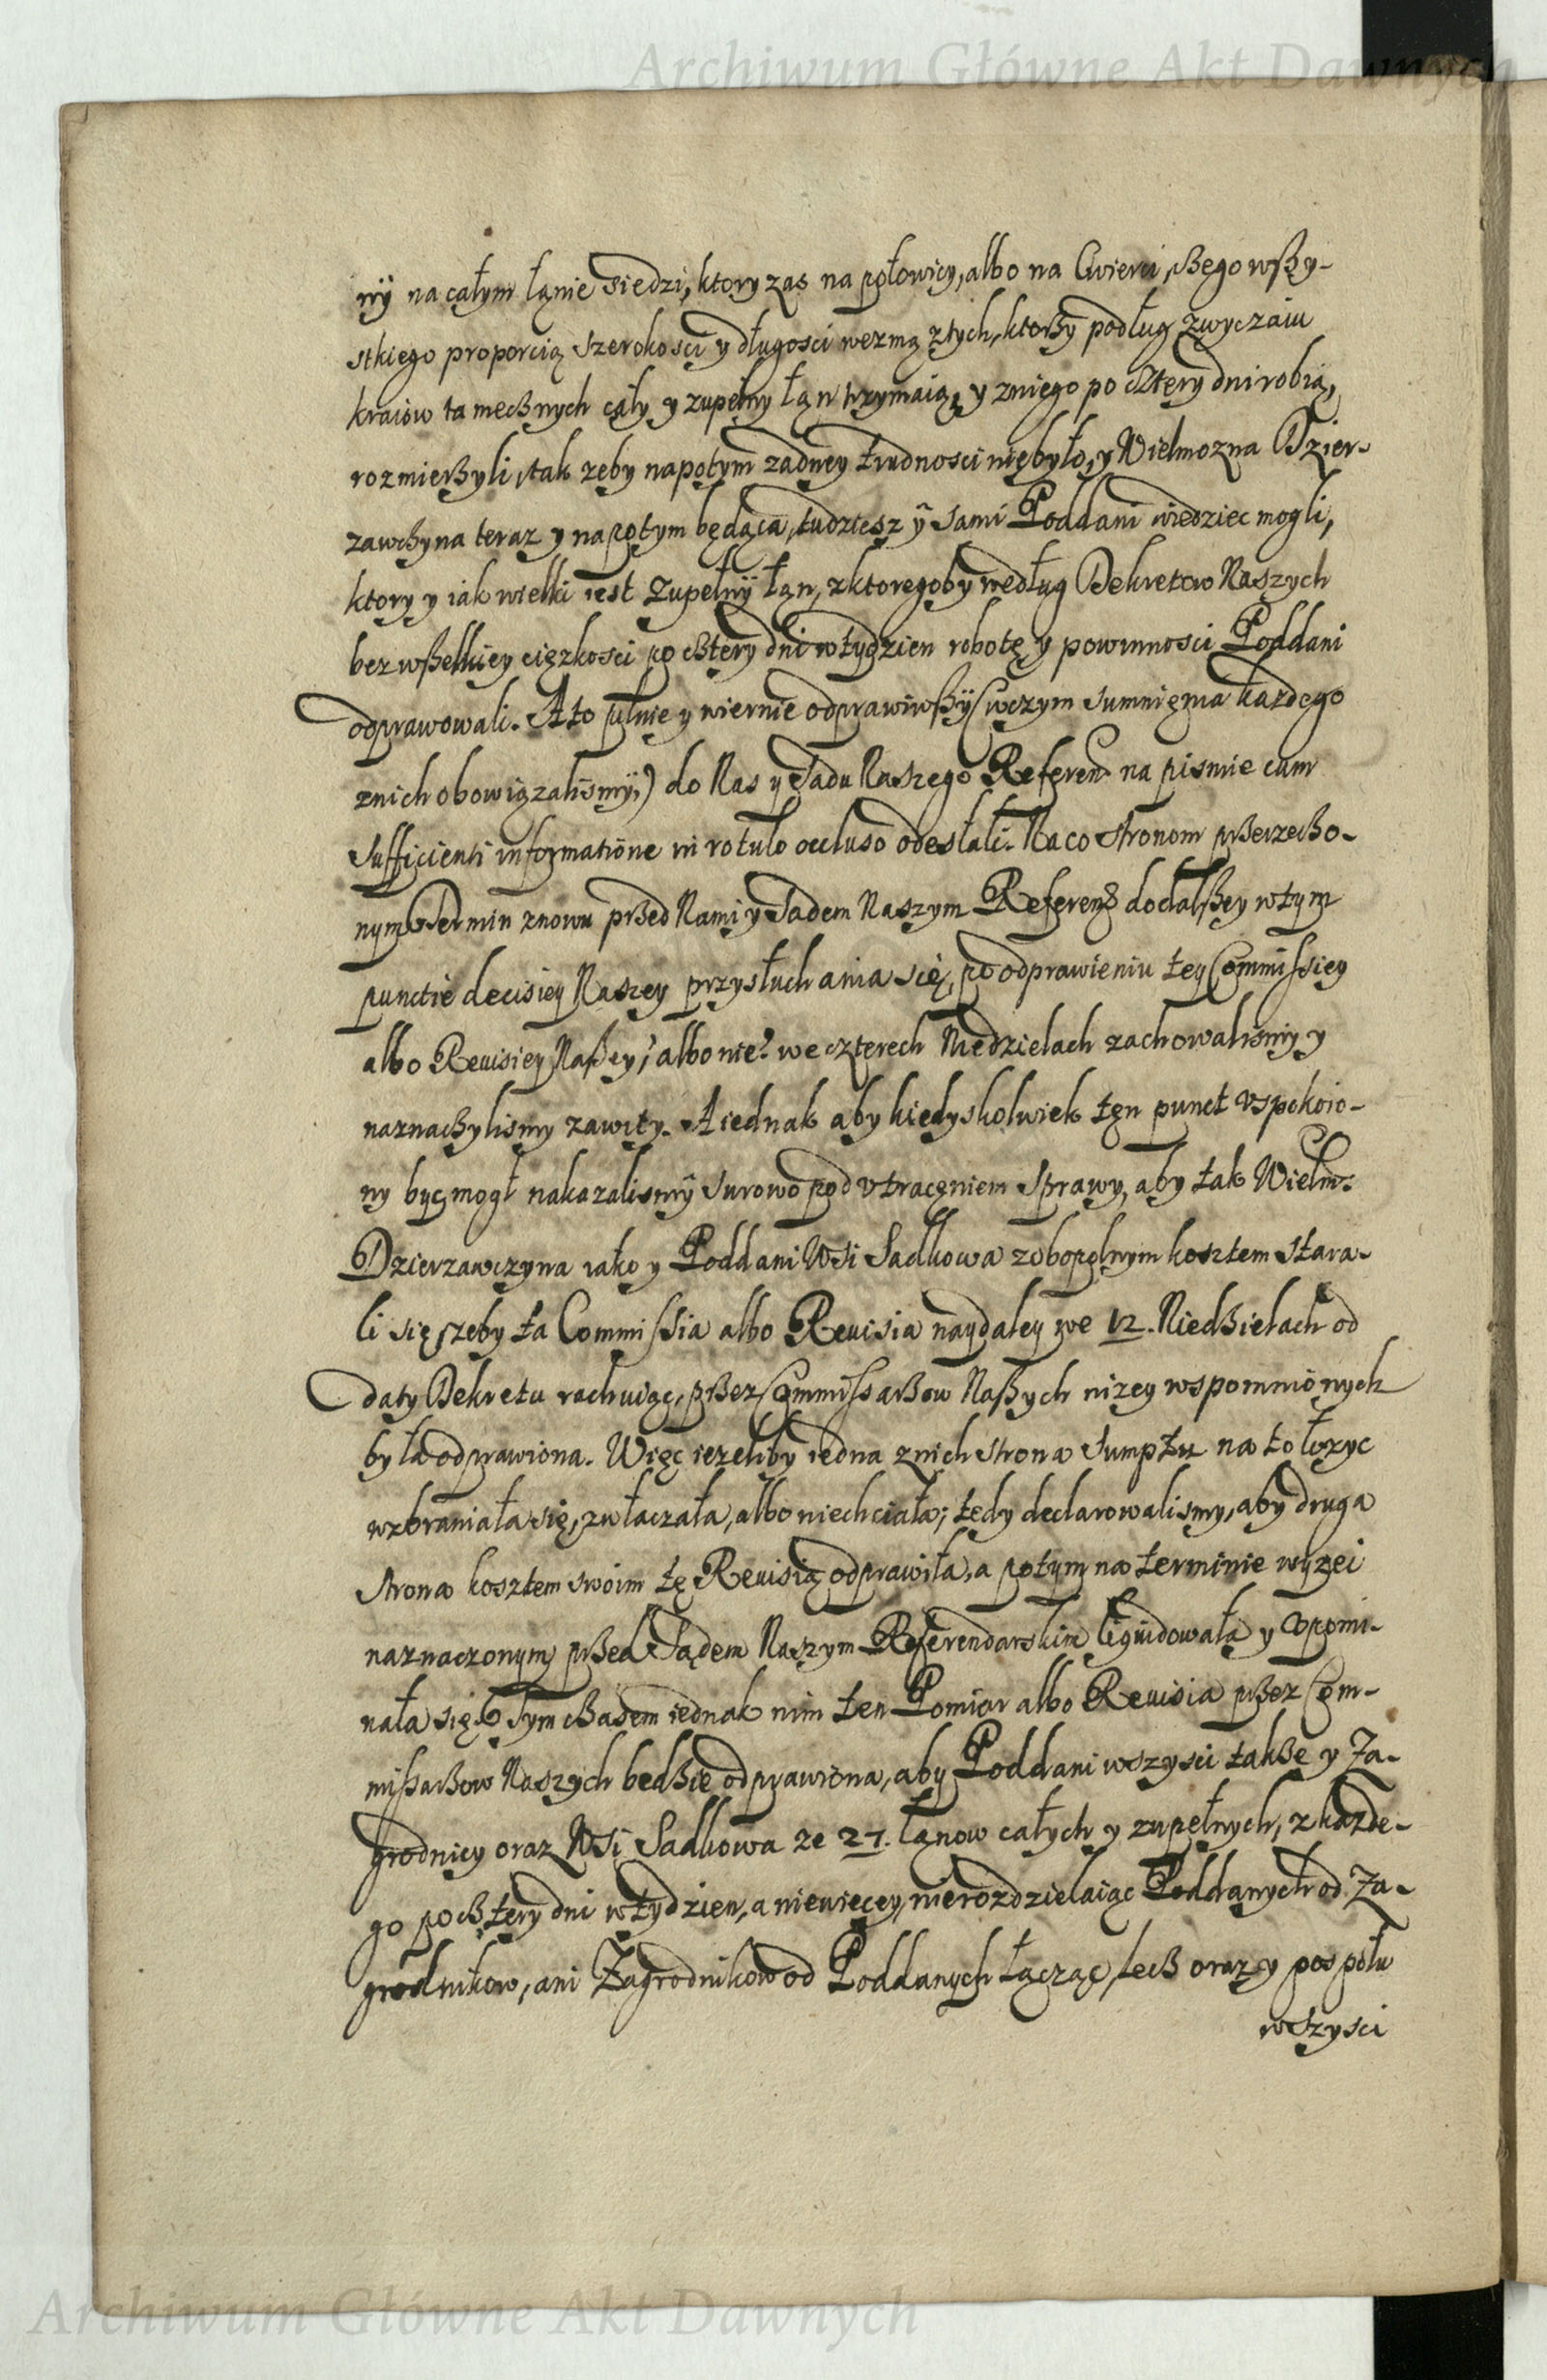 Archiwum Główne Akt Dawnych
ny na całym łanie siedzi, ktory zas na połowicy, albo na Cwierci, czego wszy-
stkiego proporcią szerokosci y długosci wezmą z tych, ktorzy podług zwyczaiu
kraiow tamecznych cały y zupełny łan trzymaią, y z niego po cztery dni robią,
rozmierzyli, tak zeby napotym zadney trudnosci niebyło, y Wielmozna Dzier-
zawczyna teraz y napotym będąca, tudziesz y sami Poddani wiedziec mogli,
ktory y iak wielki iest zupełny łan, z ktoregoby według Dekretow Naszych
bez wszelkiey cięzkosci po cztery dni w tydzien robotę y powinnosci Poddani
odprawowali. A to pilnie y wiernie odprawiwszy (w czym sumnienia kazdego
z nich obowiązalismy,) do Nas y Sadu Naszego Referen. na pismie cum
sufficienti informatione in rotulo occluso odesłali. Na co stronom przerzeczo-
nym Termin znowu przed Nami y Sadem Naszym Referend. do dalszey w tym
punctie decisiey Naszey przysłuchania się, po odprawieniu tey Commissiey
albo Reuisiey Naszey, albo nie? we czterech Niedzielach zachowalismy y
naznaczylismy zawity. A iednak aby kiedyszkolwiek ten punct uspokoio-
ny byc mogł nakazalismy surowo pod utraceniem sprawy, aby tak Wielm.
Dzierzawczyna iako y Poddani Wsi Sadkowa zobopolnym kosztem stara-
li się, zeby ta Commissia albo Reuisia naydaley we 12. Niedzielach od
daty Dekretu rachuiąc, przez Commissarzow Naszych nizey wspomnionych
była odprawiona. Więc iezeliby iedna z nich strona sumptu na to łozyc
wzbraniała się, zwłaczała, albo niechciała; tedy declarowalismy, aby druga
strona kosztem swoim tę Reuisią odprawiła, a potym na terminie wyzei
naznaczonym przed Sądem Naszym Referendarskim liquidowała y upomi-
nała się. Tym czasem iednak nim ten Pomiar albo Reuisia przez Com-
missarzow Naszych bedzie odprawiona, aby Poddani wszysci takze y Za-
grodnicy oraz Wsi Sadkowa ze 27. łanow całych y zupełnych, z kazde-
go po cztery dni w tydzien, a niewięcey, nierozdzielaiąc Poddanych od Za-
grodnikow, ani Zagrodnikow od Poddanych łącząc, lecz oraz y pospołu
wszysci
Archiwum Główne Akt Dawnych